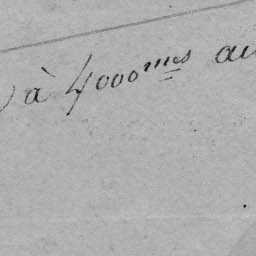 à 4000mes au